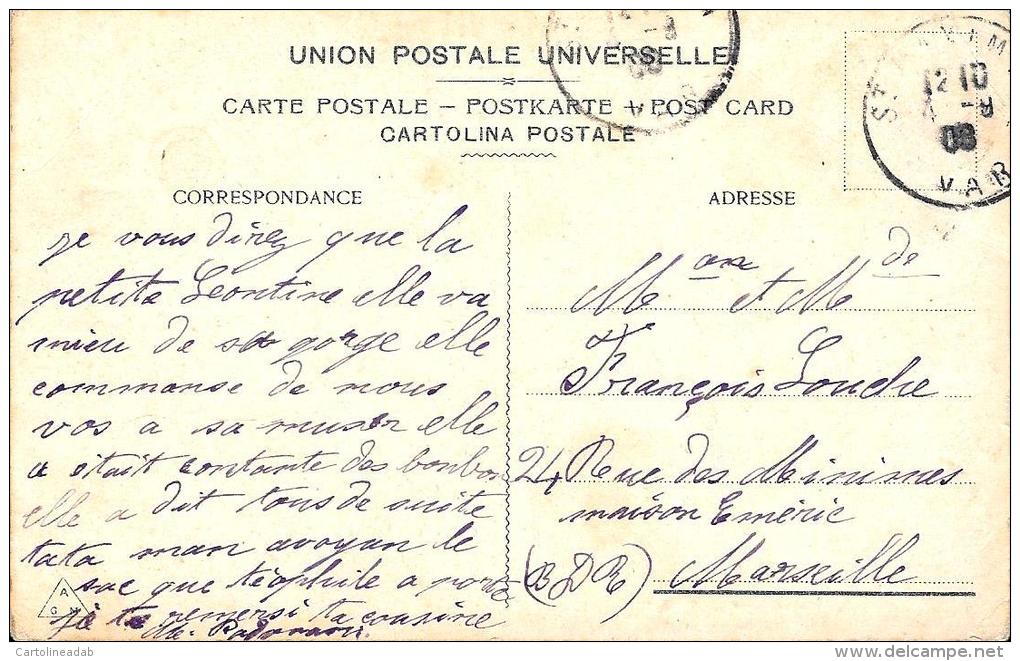 UNION POSTALE UNIVERSELLE
CARTE POSTALE — POSTKARTE + POST CARD
CARTOLINA POSTALE
12 10
08
VAR
CORRESPONDANCE
je vous direz que la
petita Leontine elle va
mieu de sa gorge elle
commanse de nous
vos a sa muser elle
a était contante des bonbon
elle a dit tous de suite
tata man avoyan le
sac que téophile a porte
je te remersi ta cousine
A
G M
ADRESSE
Mr et Mde
François Louche
24 Rue des Minimes
maison Eméric
(BDR) Marseille
© Cartolineadab
delcampe.net